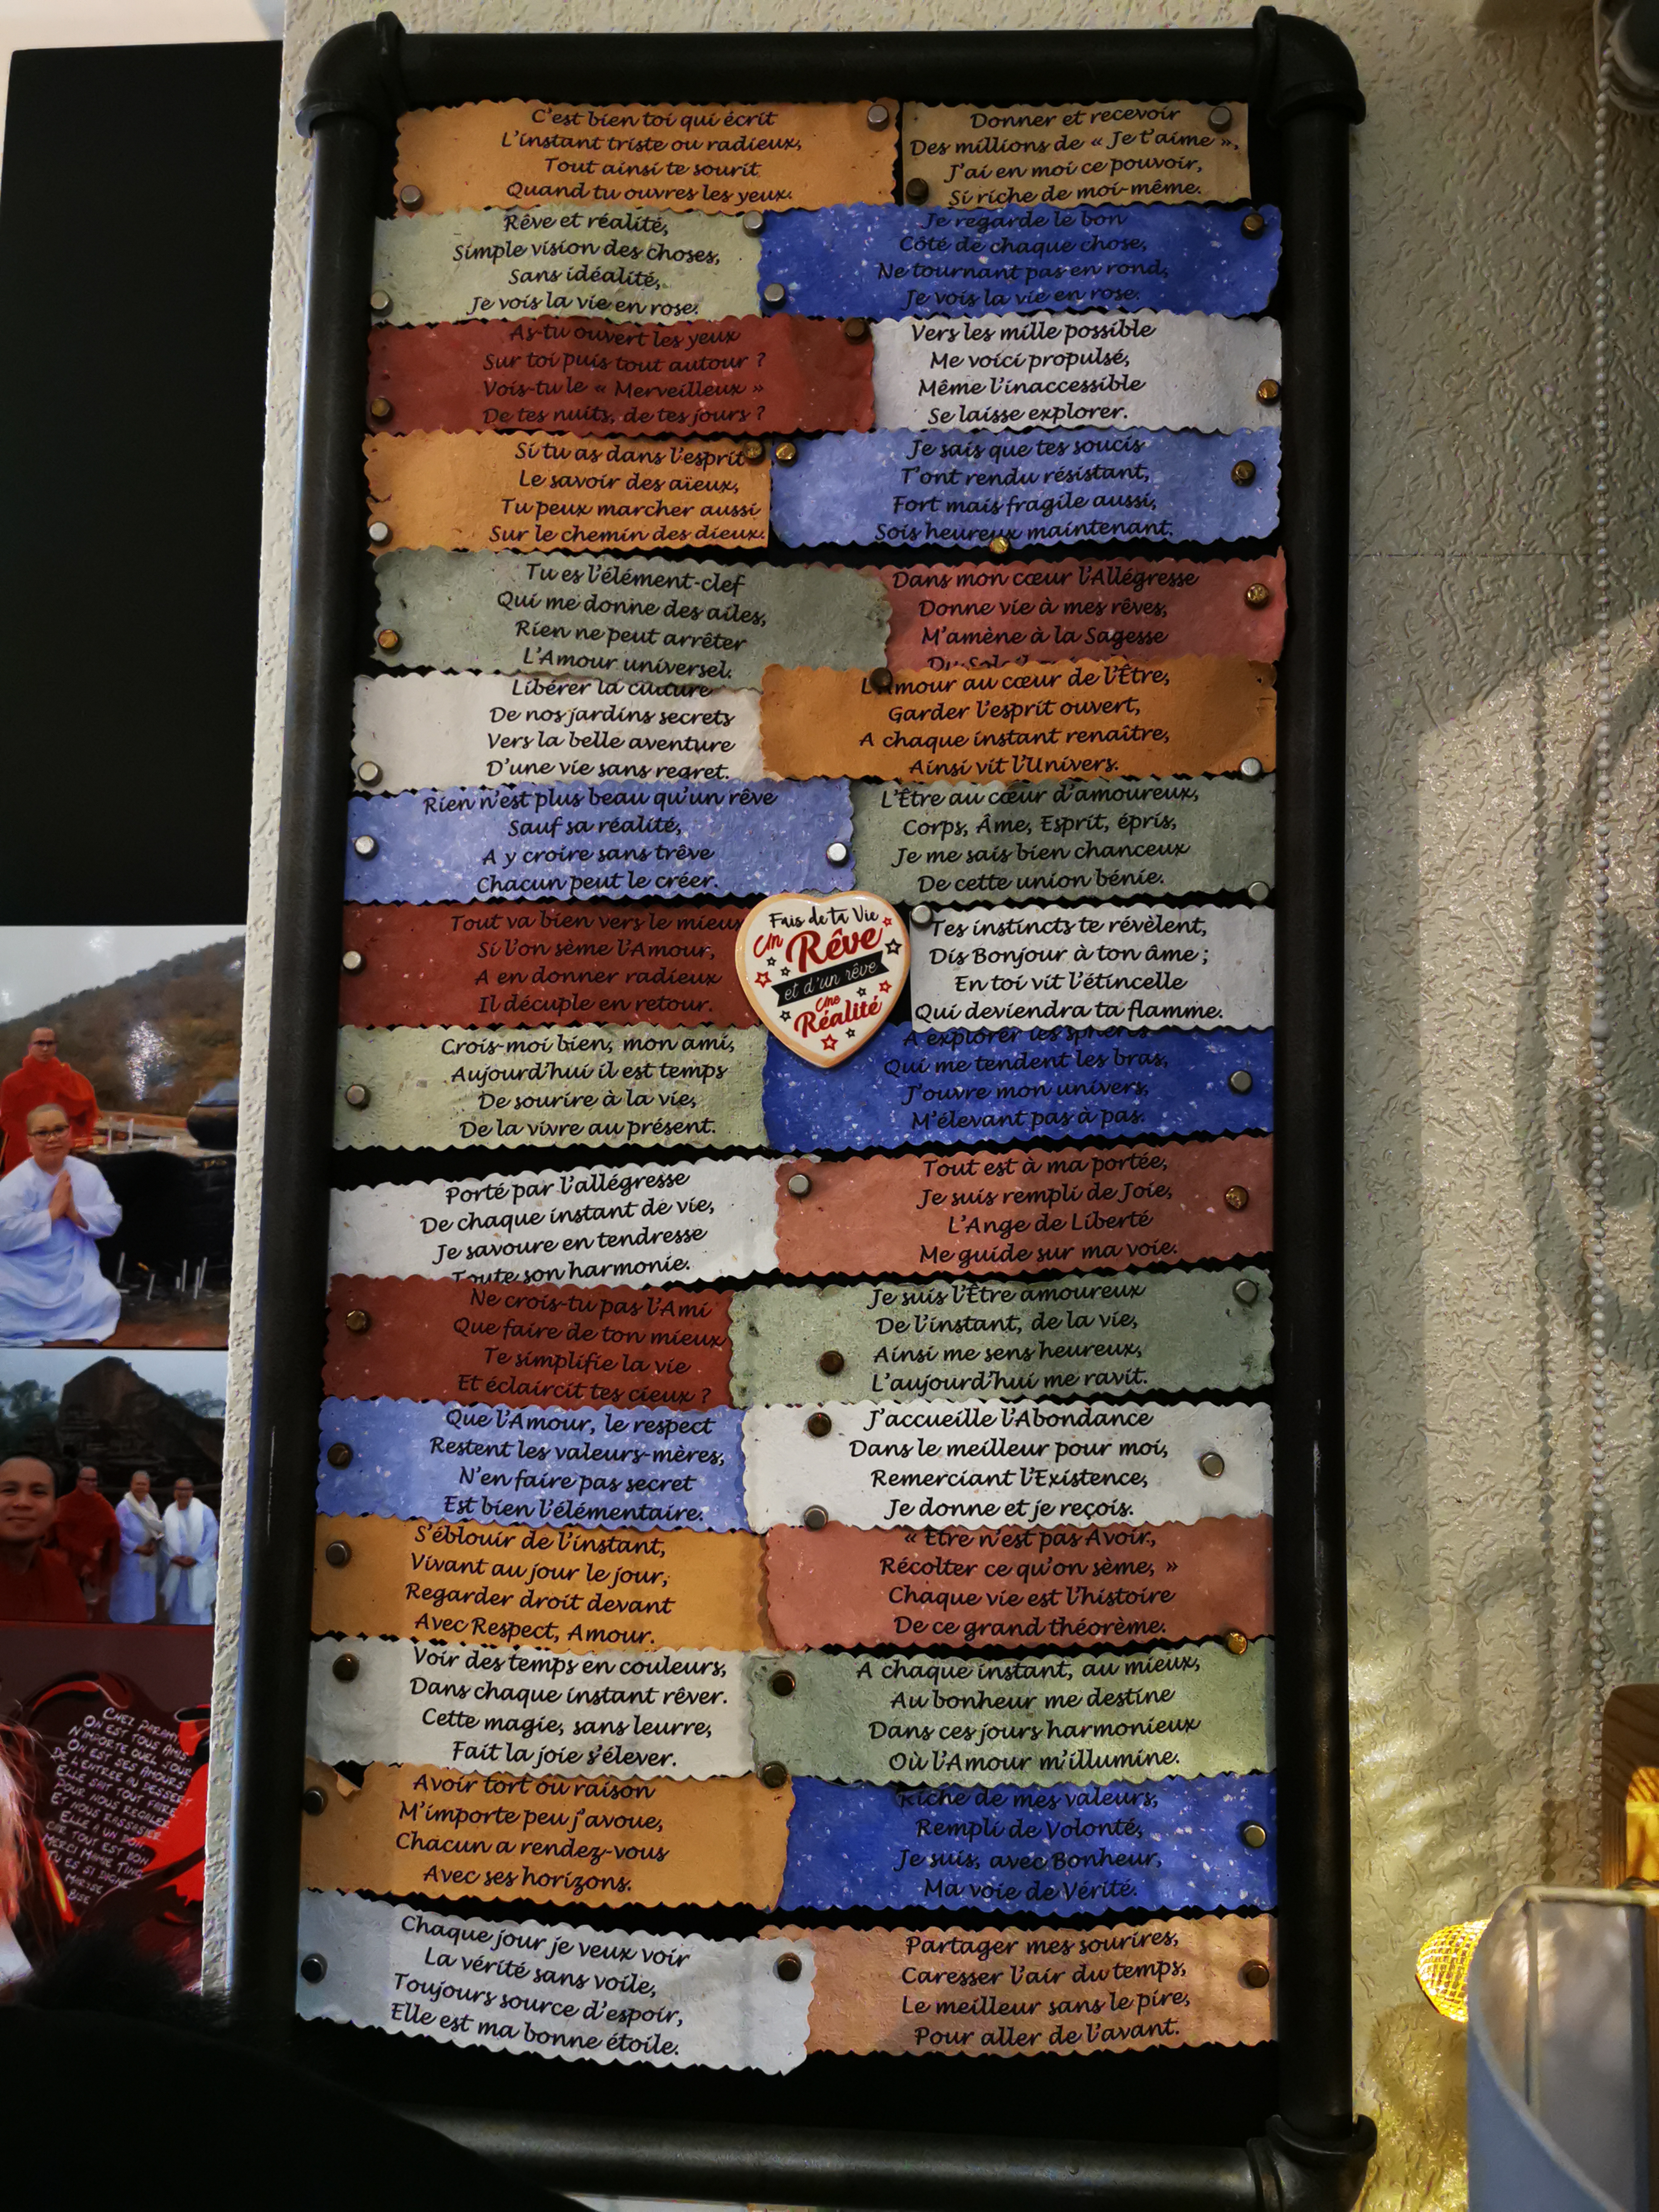 C'est bien toi qui écrit
L'instant triste ou radieux,
Tout ainsi te sourit
Quand tu ouvres les yeux.
Donner et recevoir
Des millions de « Je t'aime »,
J'ai en moi ce pouvoir,
Si riche de moi-même.
Rêve et réalité,
Simple vision des choses,
Sans idéalité,
Je vois la vie en rose.
Je regarde le bon
Côté de chaque chose,
Ne tournant pas en rond,
Je vois la vie en rose.
As-tu ouvert les yeux
Sur toi puis tout autour ?
Vois-tu le « Merveilleux »
De tes nuits, de tes jours ?
Vers les mille possible
Me voici propulsé,
Même l'inaccessible
Se laisse explorer.
Si tu as dans l'esprit
Le savoir des aïeux,
Tu peux marcher aussi
Sur le chemin des dieux.
Je sais que tes soucis
T'ont rendu résistant,
Fort mais fragile aussi,
Sois heureux maintenant.
Tu es l'élément-clef
Qui me donne des ailes,
Rien ne peut arrêter
L'Amour universel.
Dans mon cœur l'Allégresse
Donne vie à mes rêves,
M'amène à la Sagesse
Du
Libérer la
De nos jardins secrets
Vers la belle aventure
D'une vie sans regret.
L'Amour au cœur de l'Être,
Garder l'esprit ouvert,
A chaque instant renaître,
Ainsi vit l'Univers.
Rien n'est plus beau qu'un rêve
Sauf sa réalité,
A y croire sans trêve
Chacun peut le créer.
L'Être au cœur d'amoureux,
Corps, Âme, Esprit, épris,
Je me sais bien chanceux
De cette union bénie.
Tout va bien vers le mieux
Si l'on sème l'Amour,
A en donner radieux
Il décuple en retour.
Fais de ta Vie
Un Rêve
et d'un rêve
Une
Réalité
Tes instincts te révèlent,
Dis Bonjour à ton âme ;
En toi vit l'étincelle
Qui deviendra ta flamme.
Crois-moi bien, mon ami,
Aujourd'hui il est temps
De sourire à la vie,
De la vivre au présent.
A explorer les sphères
Qui me tendent les bras,
J'ouvre mon univers,
M'élevant pas à pas.
Porté par l'allégresse
De chaque instant de vie,
Je savoure en tendresse
Toute son harmonie.
Tout est à ma portée,
Je suis rempli de Joie,
L'Ange de Liberté
Me guide sur ma voie.
Ne crois-tu pas l'Ami
Que faire de ton mieux
Te simplifie la vie
Et éclaircit tes cieux ?
Je suis l'Être amoureux
De l'instant, de la vie,
Ainsi me sens heureux,
L'aujourd'hui me ravit.
Que l'Amour, le respect
Restent les valeurs-mères,
N'en faire pas secret
Est bien l'élémentaire.
J'accueille l'Abondance
Dans le meilleur pour moi,
Remerciant l'Existence,
Je donne et je reçois.
S'éblouir de l'instant,
Vivant au jour le jour,
Regarder droit devant
Avec Respect, Amour.
« Etre n'est pas Avoir,
Récolter ce qu'on sème, »
Chaque vie est l'histoire
De ce grand théorème.
Voir des temps en couleurs,
Dans chaque instant rêver.
Cette magie, sans leurre,
Fait la joie s'élever.
A chaque instant, au mieux,
Au bonheur me destine
Dans ces jours harmonieux
Où l'Amour m'illumine.
Avoir tort ou raison
M'importe peu j'avoue,
Chacun a rendez-vous
Avec ses horizons.
Riche de mes valeurs,
Rempli de Volonté,
Je suis, avec Bonheur,
Ma voie de Vérité.
Chaque jour je veux voir
La vérité sans voile,
Toujours source d'espoir,
Elle est ma bonne étoile.
Partager mes sourires,
Caresser l'air du temps,
Le meilleur sans le pire,
Pour aller de l'avant.
CHEZ PARAMY
ON EST TOUS AMIS
N'IMPORTE QUEL JOUR
ON EST SES AMOURS
DE L'ENTREE AU DESSERT
ELLE SAIT TOUT FAIRE
POUR NOUS REGALER
ET NOUS RASSASIER
ELLE A UN DON
CAR TOUT EST BON
MERCI MAMIE TING
TU ES SI DIGNE
BISE